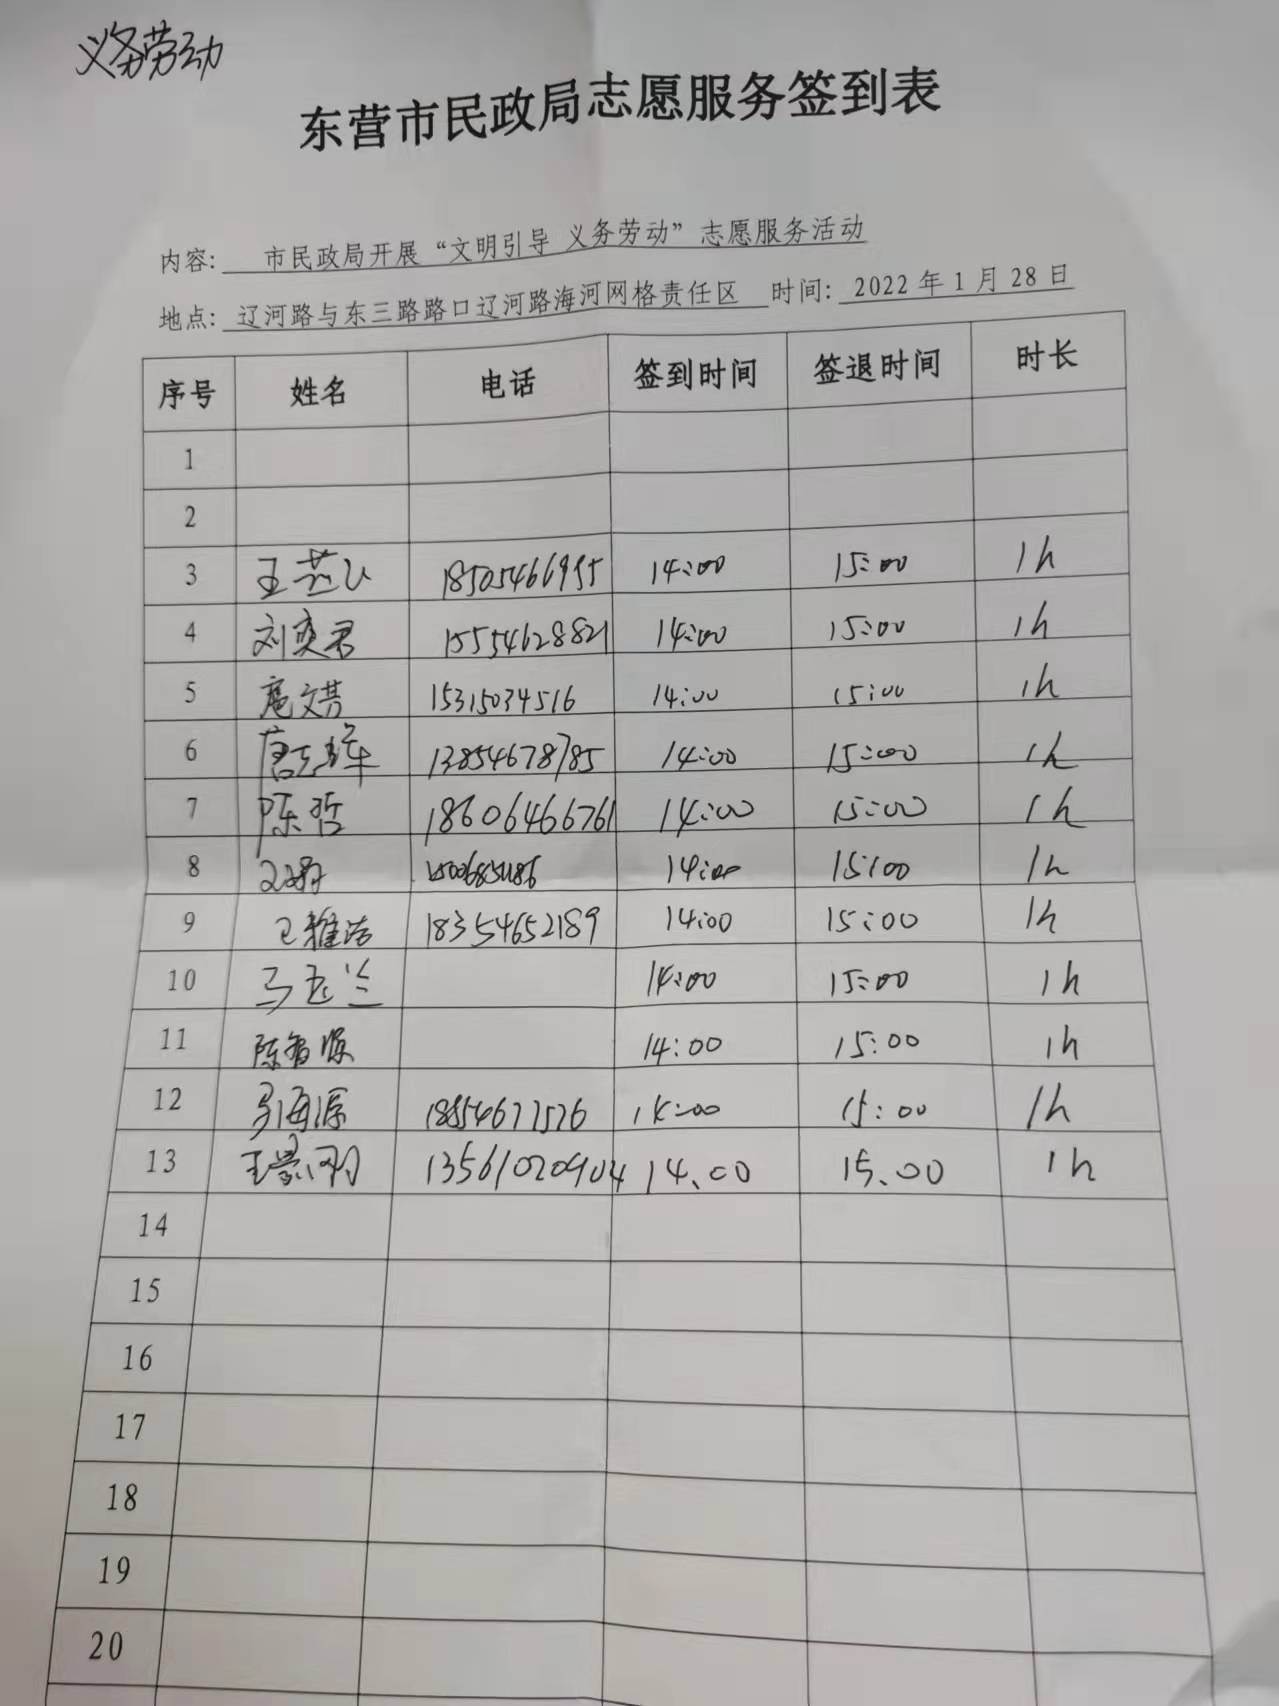 义务劳动
东营市民政局志愿服务签到表
内容: 市民政局开展“文明引导 义务劳动”志愿服务活动
地点: 辽河路与东三路路口辽河路海河网格责任区 时间: 2022年1月28日
序号 姓名 电话 签到时间 签退时间 时长
1
2
3 王燕 14:00 15:00 1h
4 刘奕君 15554628821 14:00 15:00 1h
5 15315034516 14:00 15:00 1h
6 唐志 13854678785 14:00 15:00 1h
7 陈哲 18606466761 14:00 15:00 1h
8 14:00 15:00 1h
9 雅洁 18354652189 14:00 15:00 1h
10 马玉兰 14:00 15:00 1h
11 陈 源 14:00 15:00 1h
12 海源 14:00 15:00 1h
13 王景刚 13561020904 14.00 15.00 1h
14
15
16
17
18
19
20